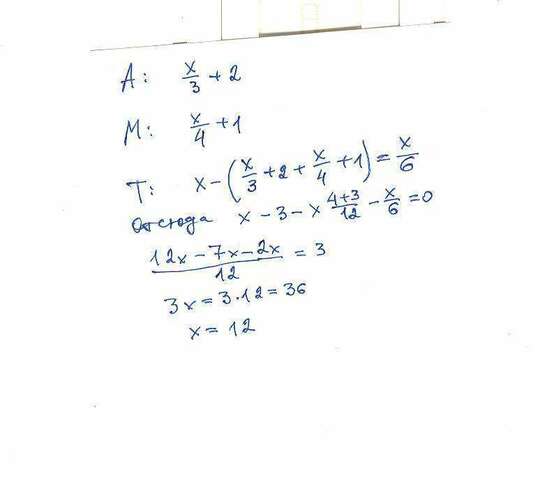 А: x/3 + 2
М: x/4 + 1
Т: x - (x/3 + 2 + x/4 + 1) = x/6
отсюда x - 3 - x (4+3)/12 - x/6 = 0
(12x - 7x - 2x)/12 = 3
3x = 3·12 = 36
x = 12